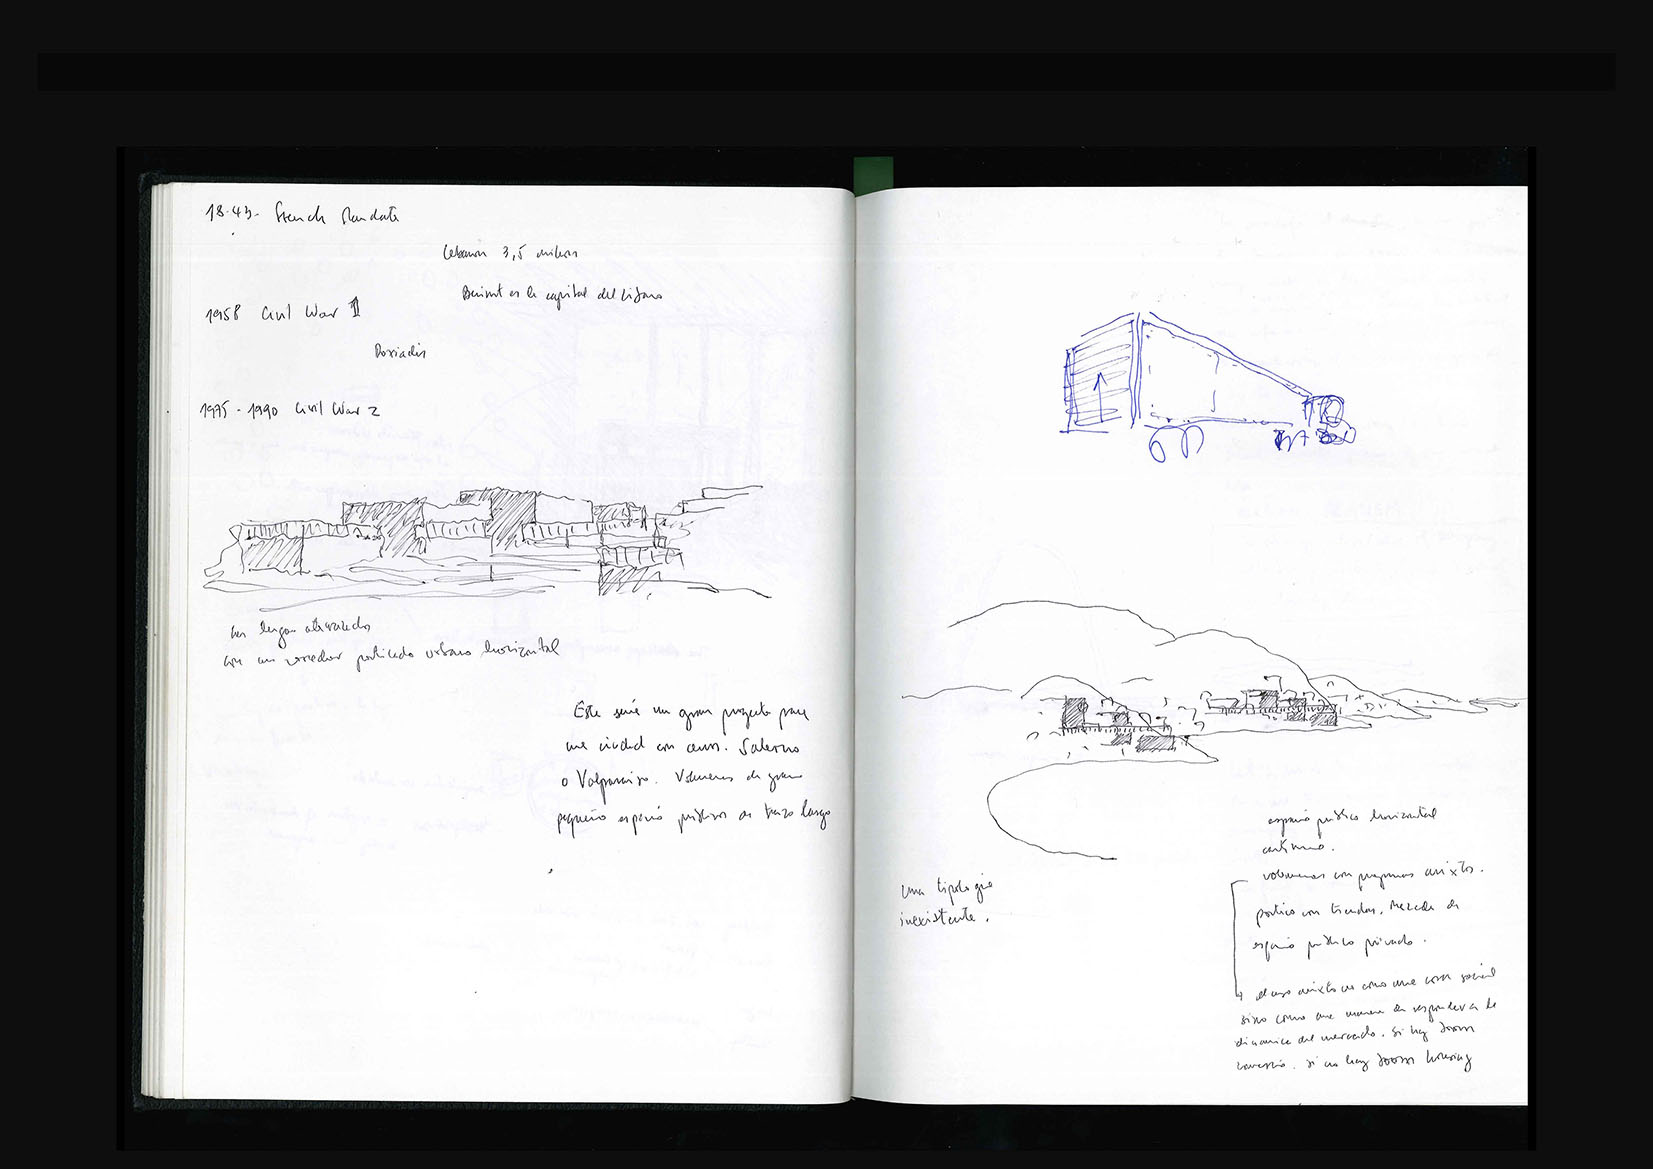 18-43- French Mandate
Lebanon 3,5 milions
Beirut es la capital del Libano
1958 Civil War 1
Doxiadis
1975 - 1990 Civil War 2
con un corredor porticado urbano horizontal
Este serie un gran proyecto para
una ciudad con cerros. Salerno
o Valparaiso. Volumenes de gran
pequeño espacio publicos de trazo largo
una tipologia
inexistente.
espacio publico horizontal
continuo.
volumenes con programas mixtos.
portico con tiendas. Mezcla de
espacio publico privado.
el uso mixto no como una cosa social
sino como una manera de responder a la
dinamica del mercado. Si hay boom
comercio. si no hay boom housing